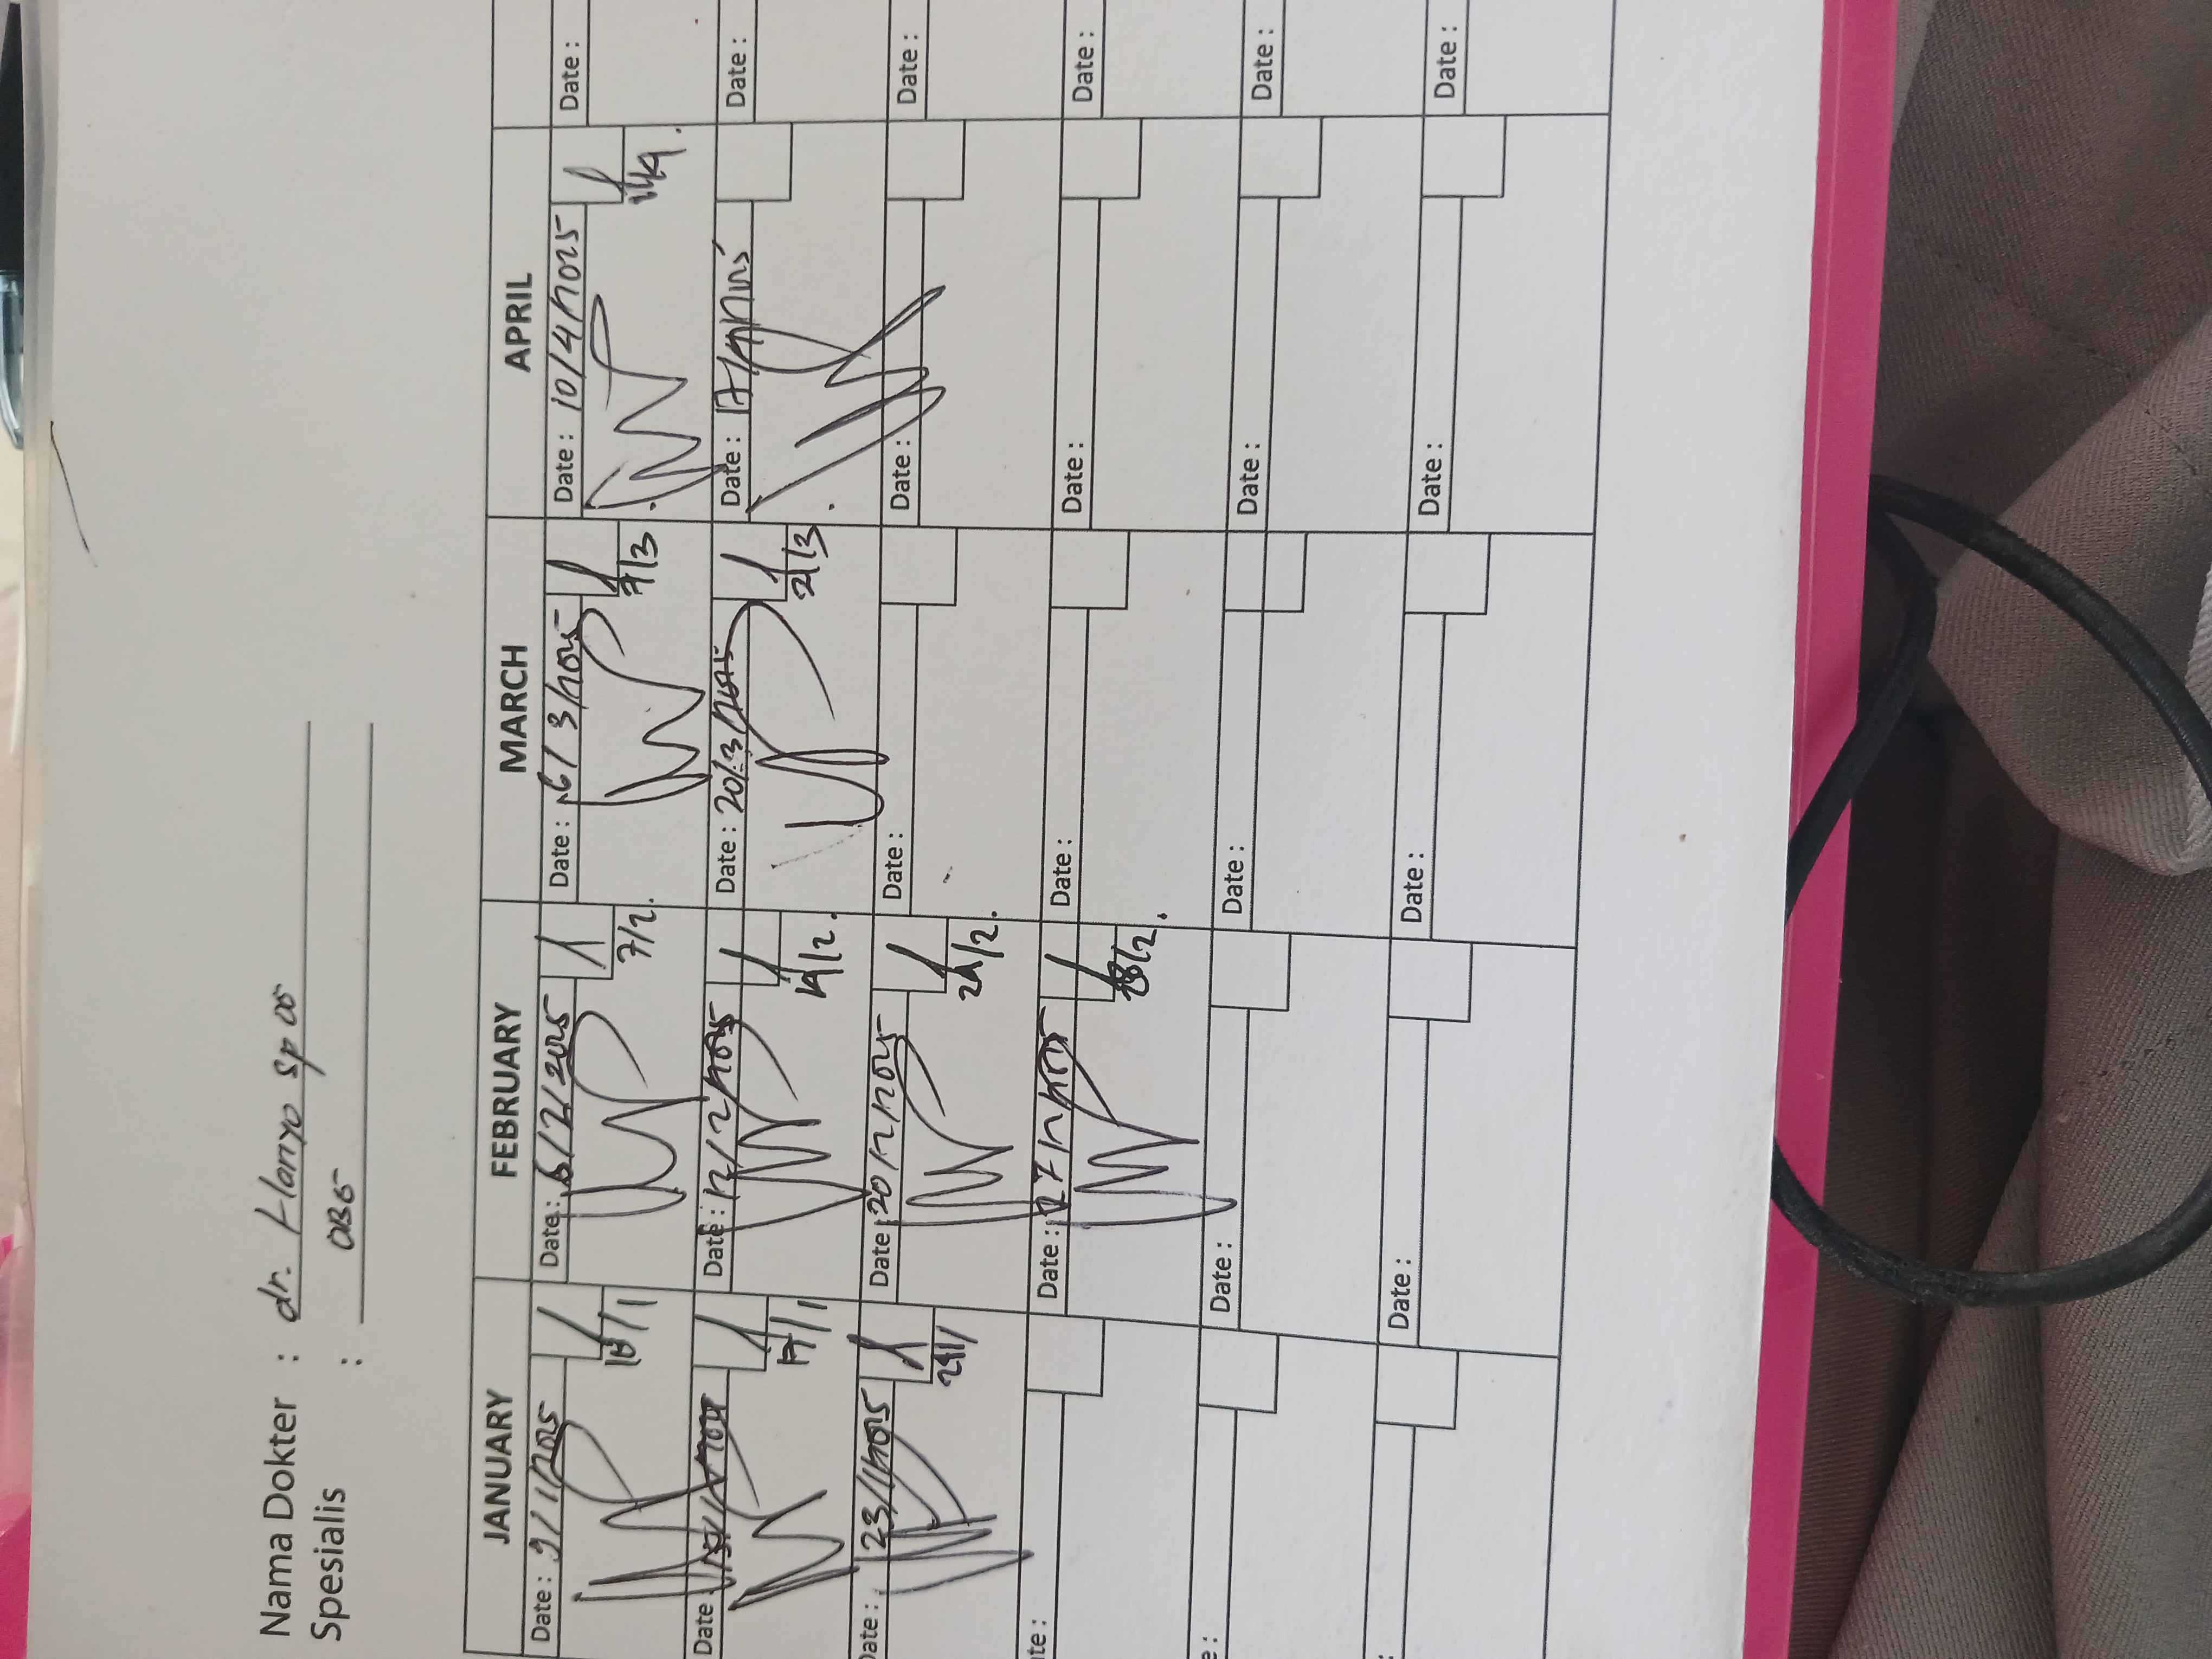 Nama Dokter : dr. Harryo Sp OG
Spesialis : OBG
JANUARY FEBRUARY MARCH APRIL
Date : 9/1/2025 Date : 6/2/2025 Date : 6/3/2025 Date : 10/4/2025 Date :
10/1 7/2. 7/3 11/4.
Date : Date : 12/2/2025 Date : 20/3/2025 Date : 17/4/2025 Date :
17/1 14/2. 21/3
Date : 23/1/2025 Date : 20/2/2025 Date : Date : Date :
24/1 21/2.
te : Date : 27/2/2025 Date : Date : Date :
28/2.
e : Date : Date : Date : Date :
: Date : Date : Date : Date :